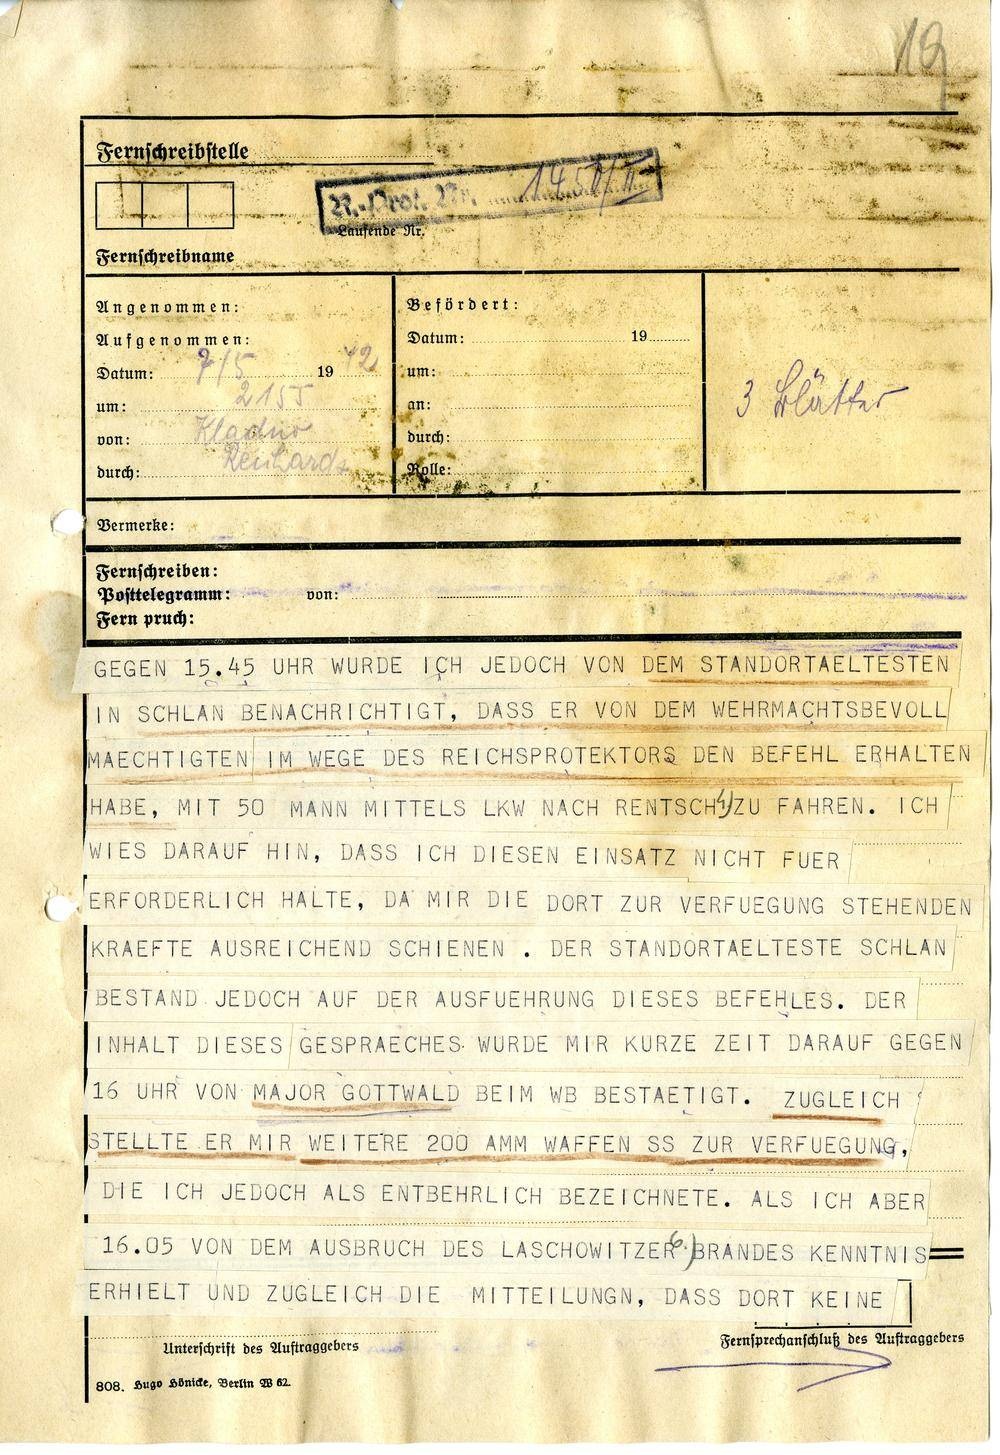 19
Fernschreibstelle
R.-Prot. Nr. 1450/II
Laufende Nr.
Fernschreibname
Angenommen:
Aufgenommen:
Datum: 7/5 19 42
um: 2155
von: Kladno
durch: Reinhardt
Befördert:
Datum: 19
um:
an:
durch:
Rolle:
3 Blätter
Vermerke:
Fernschreiben:
Posttelegramm: von:
Fern pruch:
GEGEN 15.45 UHR WURDE ICH JEDOCH VON DEM STANDORTAELTESTEN
IN SCHLAN BENACHRICHTIGT, DASS ER VON DEM WEHRMACHTSBEVOLL
MAECHTIGTEN IM WEGE DES REICHSPROTEKTORS DEN BEFEHL ERHALTEN
HABE, MIT 50 MANN MITTELS LKW NACH RENTSCH ZU FAHREN. ICH
WIES DARAUF HIN, DASS ICH DIESEN EINSATZ NICHT FUER
ERFORDERLICH HALTE, DA MIR DIE DORT ZUR VERFUEGUNG STEHENDEN
KRAEFTE AUSREICHEND SCHIENEN . DER STANDORTAELTESTE SCHLAN
BESTAND JEDOCH AUF DER AUSFUEHRUNG DIESES BEFEHLES. DER
INHALT DIESES GESPRAECHES WURDE MIR KURZE ZEIT DARAUF GEGEN
16 UHR VON MAJOR GOTTWALD BEIM WB BESTAETIGT. ZUGLEICH
STELLTE ER MIR WEITERE 200 AMM WAFFEN SS ZUR VERFUEGUNG,
DIE ICH JEDOCH ALS ENTBEHRLICH BEZEICHNETE. ALS ICH ABER
16.05 VON DEM AUSBRUCH DES LASCHOWITZER 6.) BRANDES KENNTNIS
ERHIELT UND ZUGLEICH DIE MITTEILUNGN, DASS DORT KEINE
Unterschrift des Auftraggebers
Fernsprechanschluß des Auftraggebers
808. Hugo Hönicke, Berlin W 62.